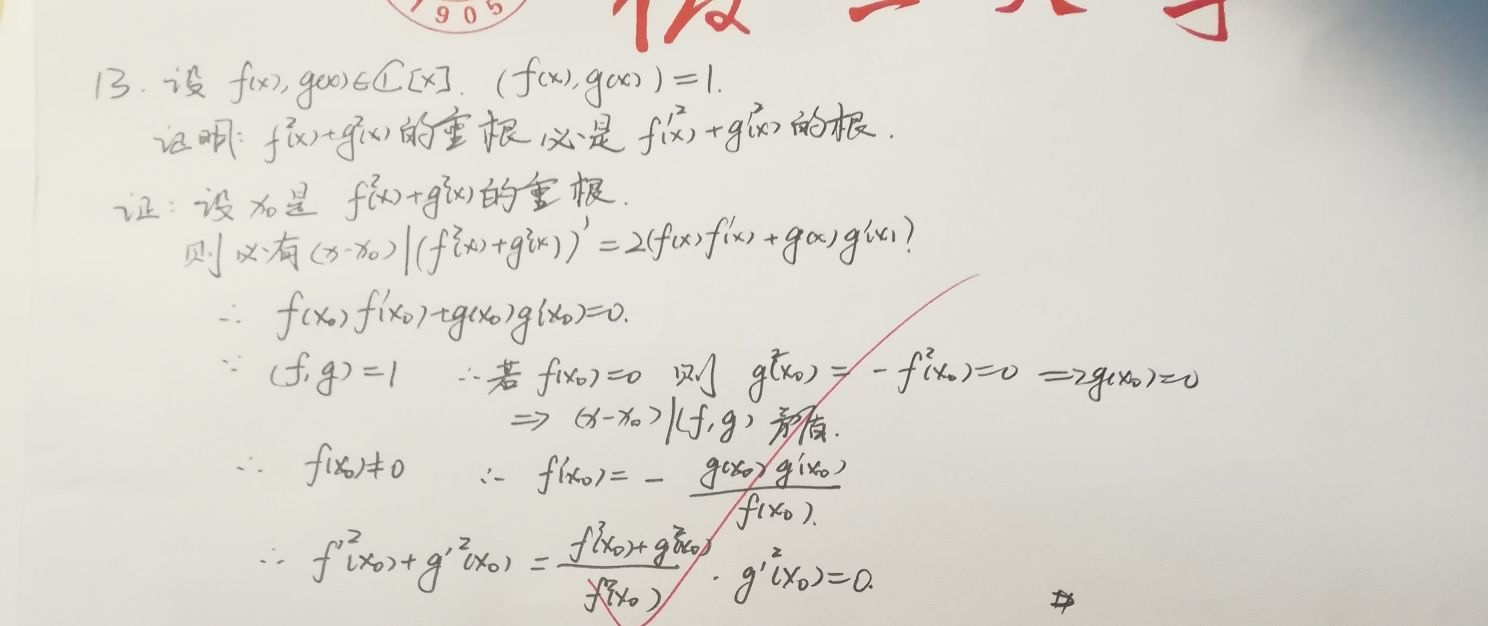 905
13. 设 f(x), g(x)∈ℂ[x]. (f(x), g(x))=1.
证明: f²(x)+g²(x) 的重根必是 f'²(x)+g'²(x) 的根.
证: 设 x₀是 f²(x)+g²(x) 的重根.
则必有 (x-x₀)|(f²(x)+g²(x))'=2(f(x)f'(x)+g(x)g'(x))
∴ f(x₀)f'(x₀)+g(x₀)g'(x₀)=0.
∵ (f,g)=1 ∴若 f(x₀)=0 则 g²(x₀)=-f²(x₀)=0 ⇒g(x₀)=0
⇒ (x-x₀)|(f,g) 矛盾.
∴ f(x₀)≠0 ∴ f'(x₀)=-g(x₀)g'(x₀)/f(x₀).
∴ f'²(x₀)+g'²(x₀)=(f²(x₀)+g²(x₀))/f²(x₀)·g'²(x₀)=0.
#